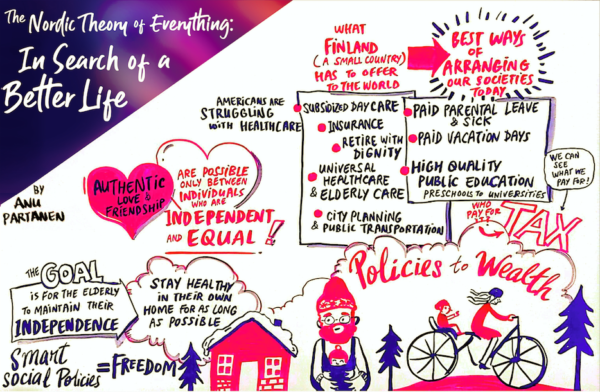 The Nordic Theory of Everything:
In Search of a
Better Life
BY
ANU
PARTANEN
AUTHENTIC
LOVE &
FRIENDSHIP
ARE POSSIBLE
ONLY BETWEEN
INDIVIDUALS
WHO ARE
INDEPENDENT
AND EQUAL!!
AMERICANS ARE
STRUGGLING
WITH HEALTHCARE
WHAT
FINLAND
(A SMALL COUNTRY)
HAS TO OFFER
TO THE WORLD
BEST WAYS
OF
ARRANGING
OUR SOCIETIES
TODAY
SUBSIDIZED DAY CARE
INSURANCE
RETIRE WITH
DIGNITY
UNIVERSAL
HEALTHCARE
& ELDERLY CARE
CITY PLANNING
& PUBLIC TRANSPORTATION
PAID PARENTAL LEAVE
& SICK
PAID VACATION DAYS
HIGH QUALITY
PUBLIC EDUCATION
PRESCHOOLS TO UNIVERSITIES
WE CAN
SEE
WHAT WE
PAY FOR!
WHO
PAY FOR IT?
TAX
Policies to Wealth
THE GOAL
IS FOR THE ELDERLY
TO MAINTAIN THEIR
INDEPENDENCE
STAY HEALTHY
IN THEIR OWN
HOME FOR AS LONG
AS POSSIBLE
Smart
Social Policies
=FREEDOM